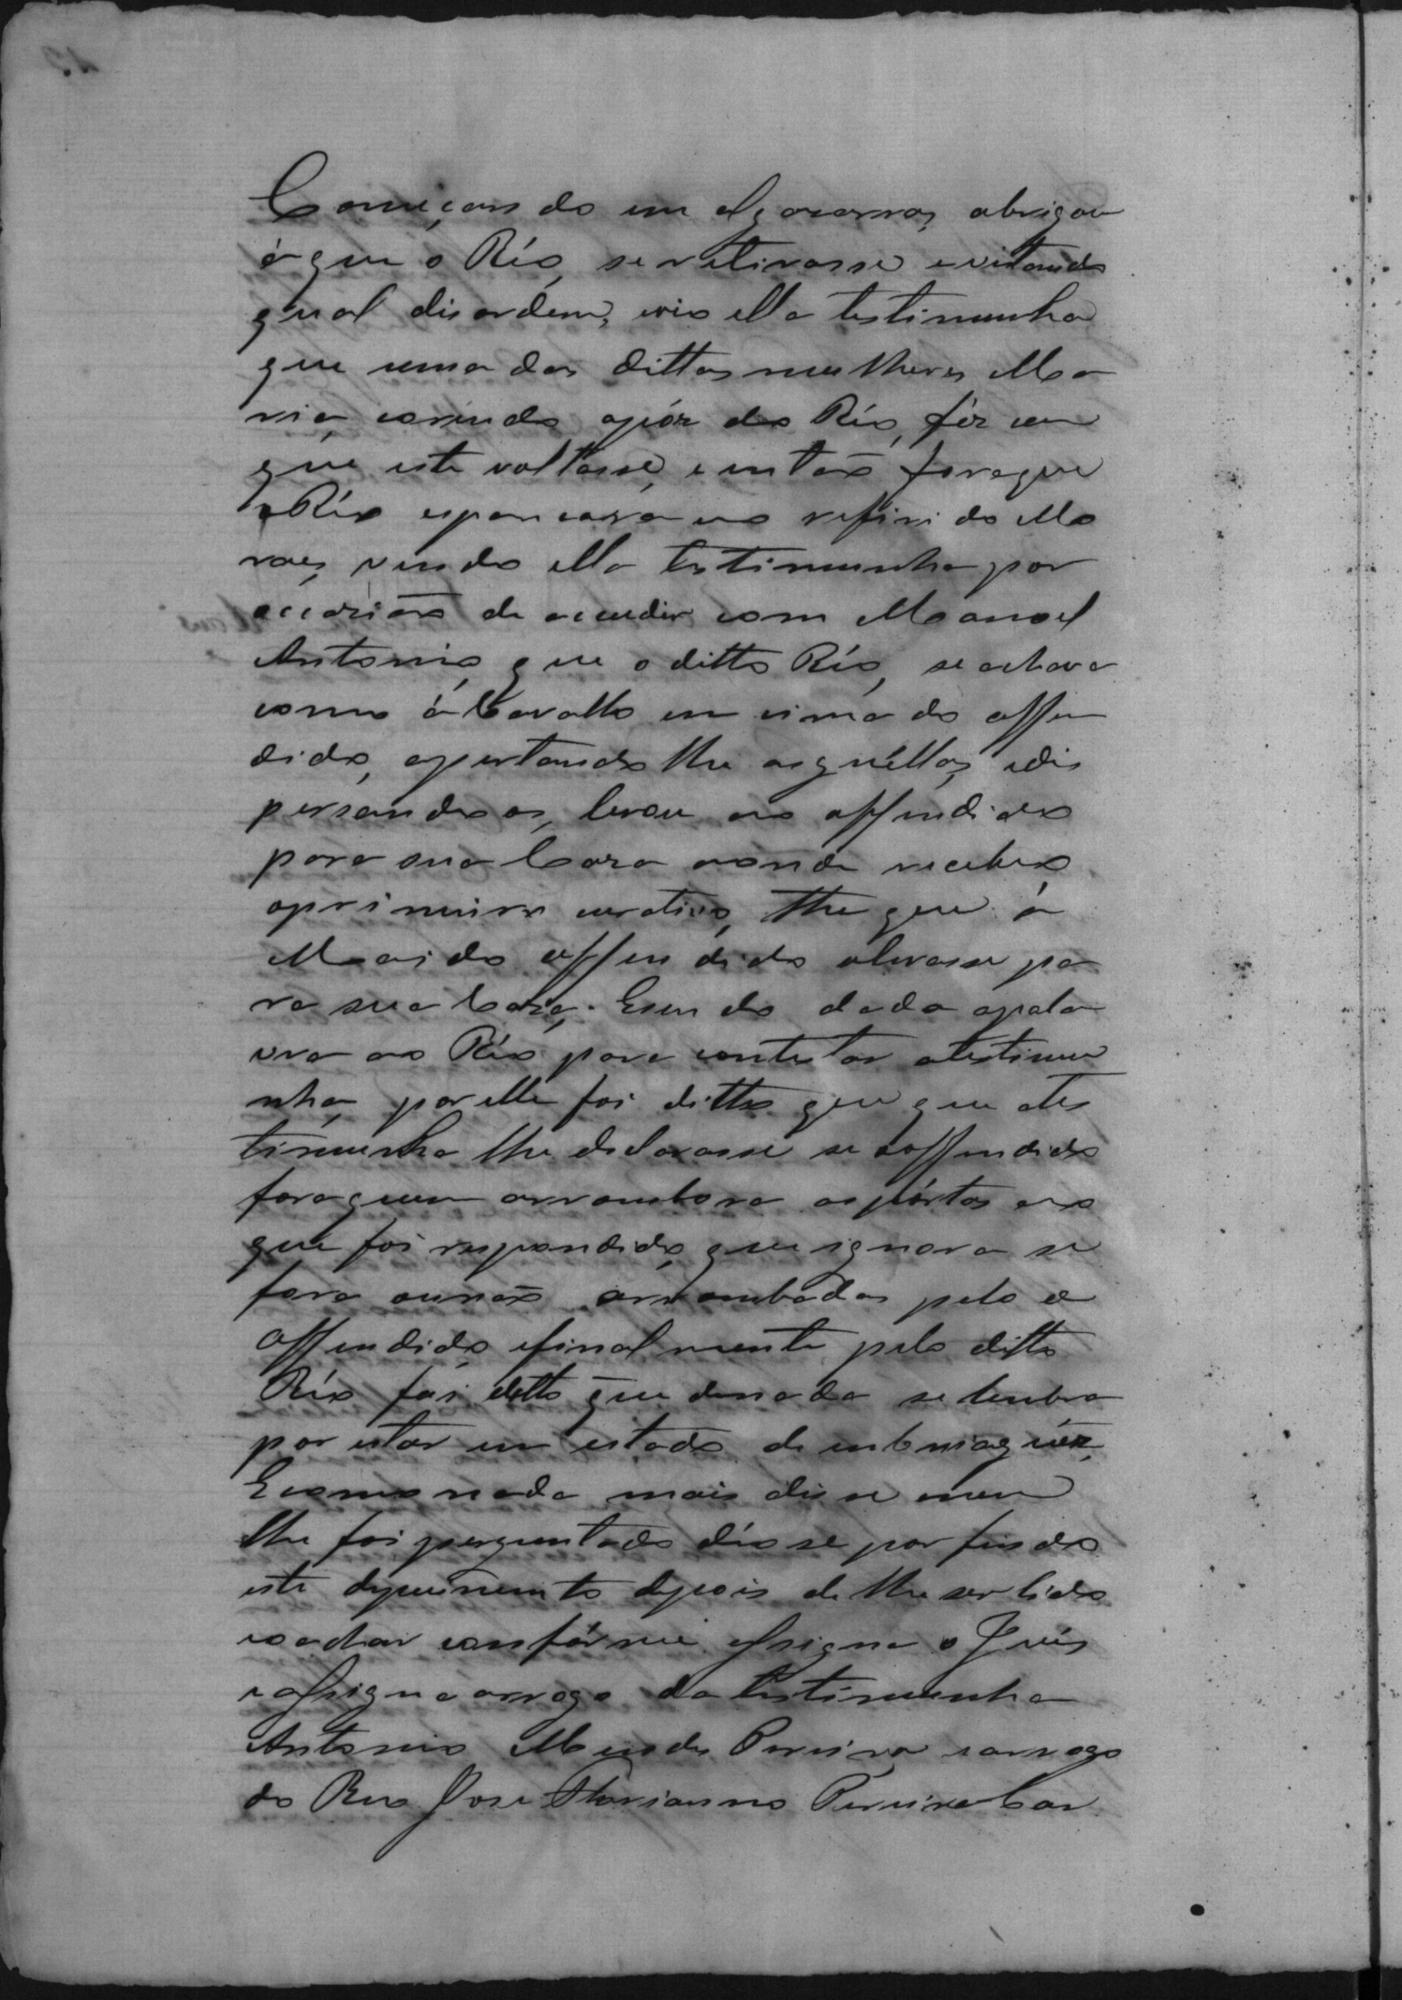 Começando em algazarras, obrigou
á que o Réo, se retirasse evitando
qual disordem, veio ella testimunha
que uma das dittas mulheres Ma
ria, corindo após do Réo, féz com
que este voltasse, e então fora que
o Réo espancara ao referido Mo
raes, vendo ella testimunha por
occazião de accudir com Manoel
Antonio, que o ditto Réo, se achava
como á Cavallo em cima do offen
dido, apertando lhe as guéllas, e dis
persando os, levou ao offendido
para sua Caza aonde recebeo
o primeiro curativo, the que á
Mai do offendido o levasse pa
ra sua Caza. E sendo dada a pala
vra ao Réo para contestar a testimu
nha, por elle foi ditto que que a tes
timunha lhe declarasse se o offendido
fora quem arrombara as pórtas ao
que foi respondido, que ignora se
fora ou não arrombadas pelo o
offendido, e finalmente pelo ditto
Réo foi ditto que de nada se lembra
por estar em estado de embriaguéz.
E como nada mais disse nem
lhe foi perguntado diose por findo
este depuimento depois de lhe ser lido
e o achar confórme assigna o Juis
e assigna a rogo da testimunha
Antonio Mendes Pereira, e a rogo
do Reo José Florianno Pereira Car